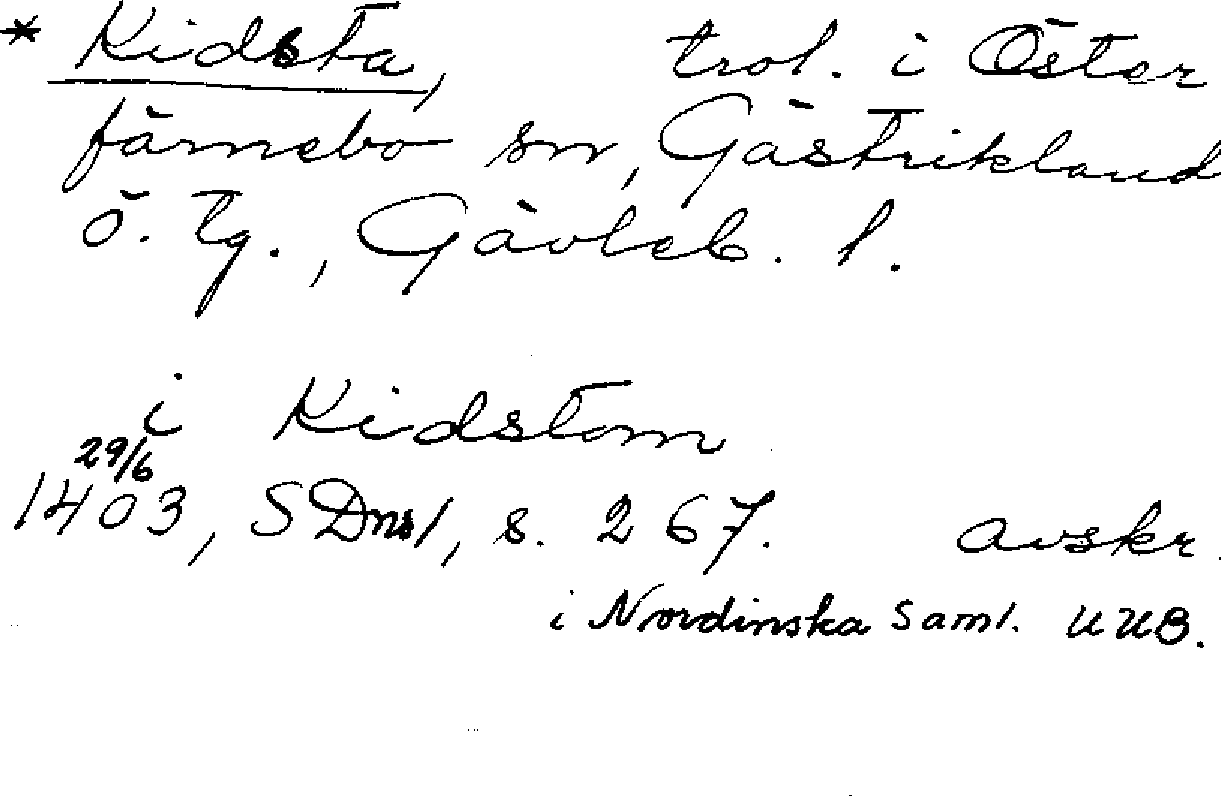 * Kidsta, trol. i Öster
färnebo sn, Gästrikland
ö. tg., Gävleb. l.
i Kidstom
29/6
1403, SDns1, s. 267. avskr.
i Nordinska Saml. UUB.